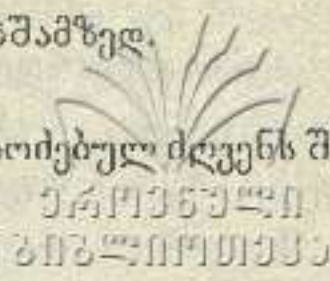 შამზედ.
ოძებულ ძღვენს შ
ეროვნული
ბიბლიოთეკა